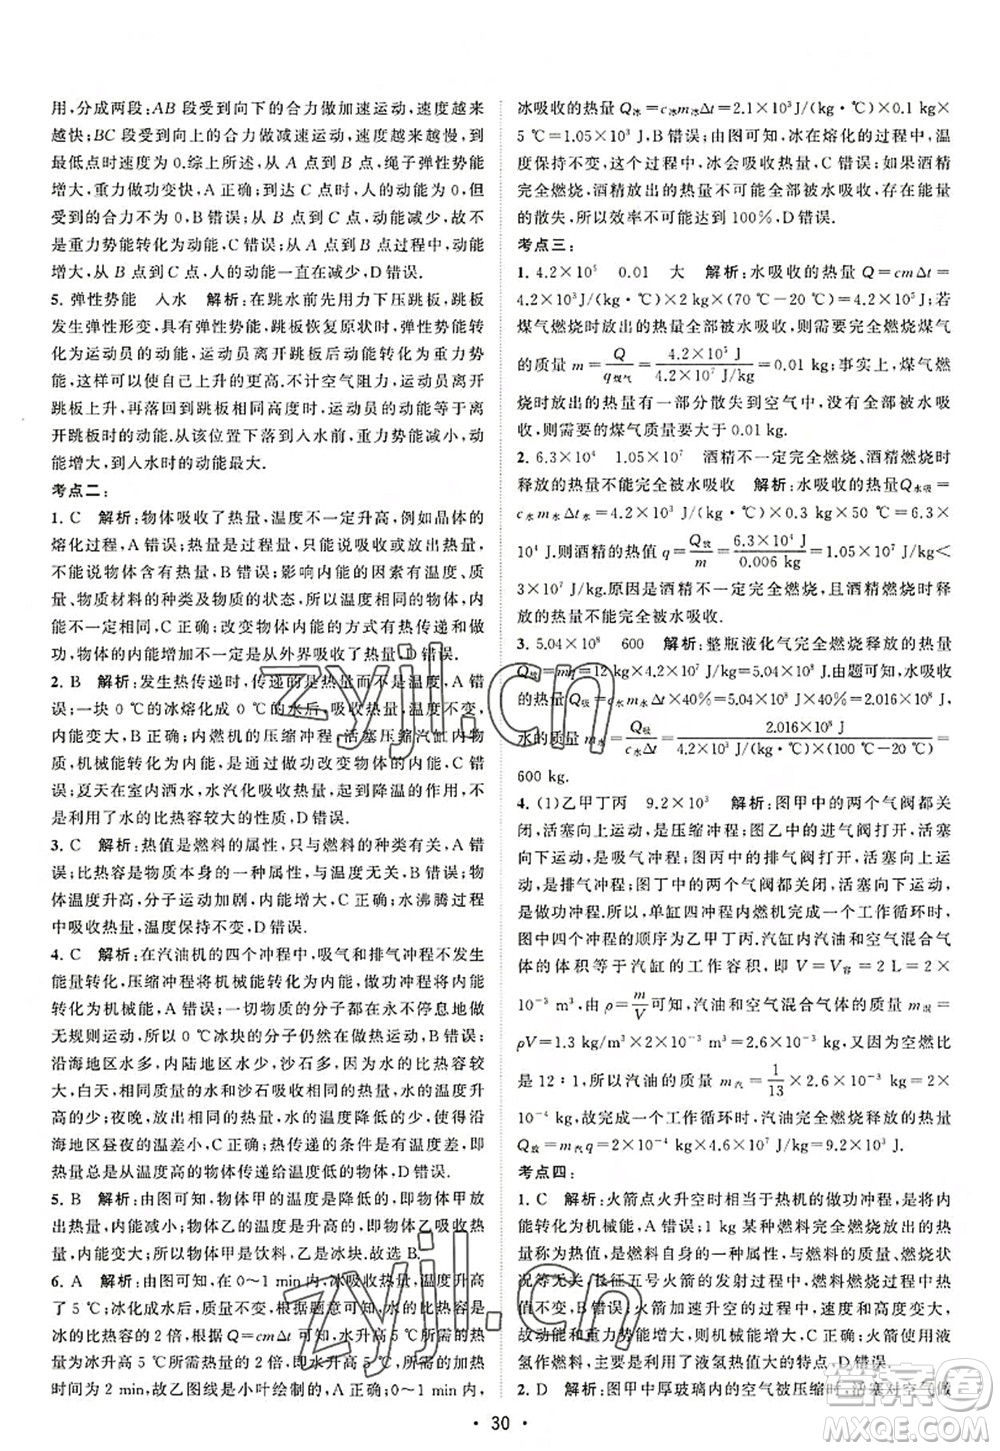 用,分成两段:AB 段受到向下的合力做加速运动,速度越来
越快;BC 段受到向上的合力做减速运动,速度越来越慢,在
最低点时速度为 0.综上所述,从 A 点到 C 点,绳子弹性势能
增大,重力做功变快,A 正确;到达 C 点时,人的速度为 0,但
受到的合力不为 0,B 错误;从 B 点到 C 点,动能减少,故不
是重力势能转化为动能,C 错误;从 A 点到 B 点,人的动能
增大,从 B 点到 C 点,人的动能减少,D 错误.
5. 弹性势能 入水 解析:在跳水前先用力下压跳板,跳板
发生弹性形变,具有弹性势能,跳板恢复原状时,弹性势能转
化为运动员的动能,运动员离开跳板后动能转化为重力势
能,这样可以使自己上升的更高.不计空气阻力,运动员离开
跳板上升,再落回到跳板相同高度时,运动员的动能等于离
开跳板时的动能,从该位置下落到入水前,重力势能减小,动
能增大,到入水时的动能最大.
考点二:
1. C 解析:物体吸收了热量,温度不一定升高,例如晶体的
熔化过程,A 错误;热量是过程量,只能说吸收或放出热量,
不能说物体含有热量,B 错误;影响内能的因素有温度、质量、
物质材料的种类及物质的状态,所以温度相同的物体,内能
不一定相同,C 正确;改变物体内能的方式有热传递和做功,
物体的内能增加,不一定是从外界吸收了热量,D 错误.
2. B 解析:发生热传递时,传递的是热量而不是温度,A 错
误;一块 0 ℃的冰熔化成 0 ℃的水后,吸收热量,内能增大,
B 正确;内燃机的压缩冲程,活塞压缩汽缸内的物质,对物质
做功,机械能转化为内能,是通过做功改变物体的内能,C 错
误;夏天在室内洒水,水汽化吸热,起到降温的作用,不是利
用了水的比热容较大的特点,D 错误.
3. C 解析:热值是燃料的属性,只与燃料的种类有关,A 错
误;比热容是物质本身的一种属性,与质量无关,B 错误;物
体温度升高,分子运动加剧,内能变大,C 正确;水沸腾过程
中吸收热量,温度保持不变,D 错误.
4. C 解析:在汽油机的四个冲程中,吸气和排气冲程不发生
能量转化,压缩冲程将机械能转化为内能,做功冲程将内能
转化为机械能,A 错误;一切物质的分子都在永不停息地做
无规则运动,所以 0 ℃冰块的分子仍然在做热运动,B 错误;
沿海地区水多,内陆地区水少、沙石多,因为水的比热容较
大,白天,相同质量的水和沙石吸收相同热量,水的温度升高
的少;夜晚,放出相同热量,水的温度降低的也少,所以沿
海地区昼夜的温差小,C 正确;热传递的条件是有温度差,
热量是从温度高的物体传递给温度低的物体,D 错误.
5. B 解析:由图可知,物体甲的温度是降低的,即物体甲放
出热量,内能减少;物体乙的温度是升高的,即物体乙吸收热
量,内能增大,所以物体甲是饮料,乙是冰块.故选 B.
6. A 解析:由图乙可知,在 0～1 min内,冰吸热,温度升高
了 5 ℃;冰化成水后,根据题意可知,水升高 5 ℃,水的比热容是
冰的比热容的 2 倍,根据 Q=cmΔt 可知,水升高 5 ℃时吸收的热量
是冰升高 5 ℃时吸收热量的 2 倍,所以水升高 5 ℃时的加热
时间为 2 min,故乙图线是小叶绘制的,A 正确;0～1 min 内,
冰吸收的热量 Q冰=c冰m冰Δt=2.1×10³ J/(kg·℃)×0.1 kg×
5 ℃=1.05×10³ J,B 错误;由图可知,冰在熔化的过程中,温
度保持不变,此过程中,冰会吸收热量,C 错误;如果酒精
完全燃烧,酒精放出的热量不可能全部被水吸收,存在能量
的散失,所以效率不可能达到 100%,D 错误.
考点三:
1. 4.2×10⁵ 0.01 大 解析:水吸收的热量 Q=cmΔt=
4.2×10³ J/(kg·℃)×2 kg×(70 ℃-20 ℃)=4.2×10⁵ J;若
煤气燃烧时放出的热量全部被水吸收,则完全燃烧煤气
的质量 m=Q/q煤气=4.2×10⁵ J/4.2×10⁷ J/kg=0.01 kg;事实上,煤气燃
烧时放出的热量有一部分散失到空气中,没有全部被水吸
收,则需要的煤气质量要大于 0.01 kg.
2. 6.3×10⁴ 1.05×10⁷ 酒精不一定完全燃烧、酒精燃烧时
释放的热量不可能完全被水吸收 解析:水吸收的热量 Q水吸
=c水m水Δt水=4.2×10³ J/(kg·℃)×0.3 kg×50 ℃=6.3×
10⁴ J.则酒精的热值 q=Q放/m=6.3×10⁴ J/0.006 kg=1.05×10⁷ J/kg<
3×10⁷ J/kg.原因是酒精不一定完全燃烧,酒精燃烧时释放
的热量不可能完全被水吸收.
3. 5.04×10⁸ 600 解析:整瓶液化气完全燃烧释放的热量
Q放=mq=12 kg×4.2×10⁷ J/kg=5.04×10⁸ J.由题可知,水吸收
的热量 Q吸=c水m水Δt×40%=5.04×10⁸ J×40%=2.016×10⁸ J,
水的质量 m水=Q吸/c水Δt=2.016×10⁸ J/4.2×10³ J/(kg·℃)×(100 ℃-20 ℃)=
600 kg.
4. (1)乙甲丁丙 9.2×10³ 解析:图甲中的两个气阀都关
闭,活塞向上运动,是压缩冲程;图乙中的进气阀打开,活塞
向下运动,是吸气冲程;图丙中的排气阀打开,活塞向上运
动,是排气冲程;图丁中的两个气阀都关闭,活塞向下运动,
是做功冲程.所以,单缸四冲程内燃机工作的一个循环中,
图中的四个冲程的顺序为乙甲丁丙.汽缸内汽油和空气混合气
体的体积等于汽缸的工作容积,即 V=V容=2 L=2×
10⁻³ m³,由 ρ=m/V可知,汽油和空气混合气体的质量 m混=
ρV=1.3 kg/m³×2×10⁻³ m³=2.6×10⁻³ kg.又因为空燃比
是 12∶1,所以汽油的质量 m汽=1/13×2.6×10⁻³ kg=2×
10⁻⁴ kg,故完成一个工作循环时,汽油完全燃烧释放的热量
Q放=m汽q=2×10⁻⁴ kg×4.6×10⁷ J/kg=9.2×10³ J.
考点四:
1. C 解析:火箭点火升空时相当于热机的做功冲程,是将内
能转化为机械能,A 错误;1 kg 某种燃料完全燃烧放出的热
量称为热值,质量减少,燃料的热值不变,热值与燃烧状
况等无关,长征五号火箭的发射过程中,燃料燃烧质量变小,
热值不变,B 错误;火箭加速升空的过程中,速度和高度变大,
故动能和重力势能增大,则机械能变大,C 正确;火箭使用液
氢作燃料,是利用了液氢热值大的特点,D 错误.
2. D 解析:图甲中厚玻璃内的空气被压缩时,活塞对空气做
· 30 ·
zyjl.cn
zyjl.cn
答案圈
MXQE.COM